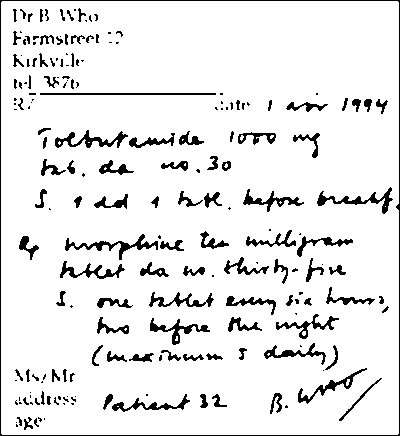 Dr B. Who
Farmstreet 12
Kirkville
tel. 3876
R/ date 1 apr 1994
Tolbutamide 1000 mg
tab. da no. 30
S. 1 dd 1 tabl. before breakf.
R/ morphine ten milligram
tablet da no. thirty-five
S. one tablet every six hours,
two before the night
(maximum 5 daily)
Ms/Mr
address Patient 32 B. WHO
age: